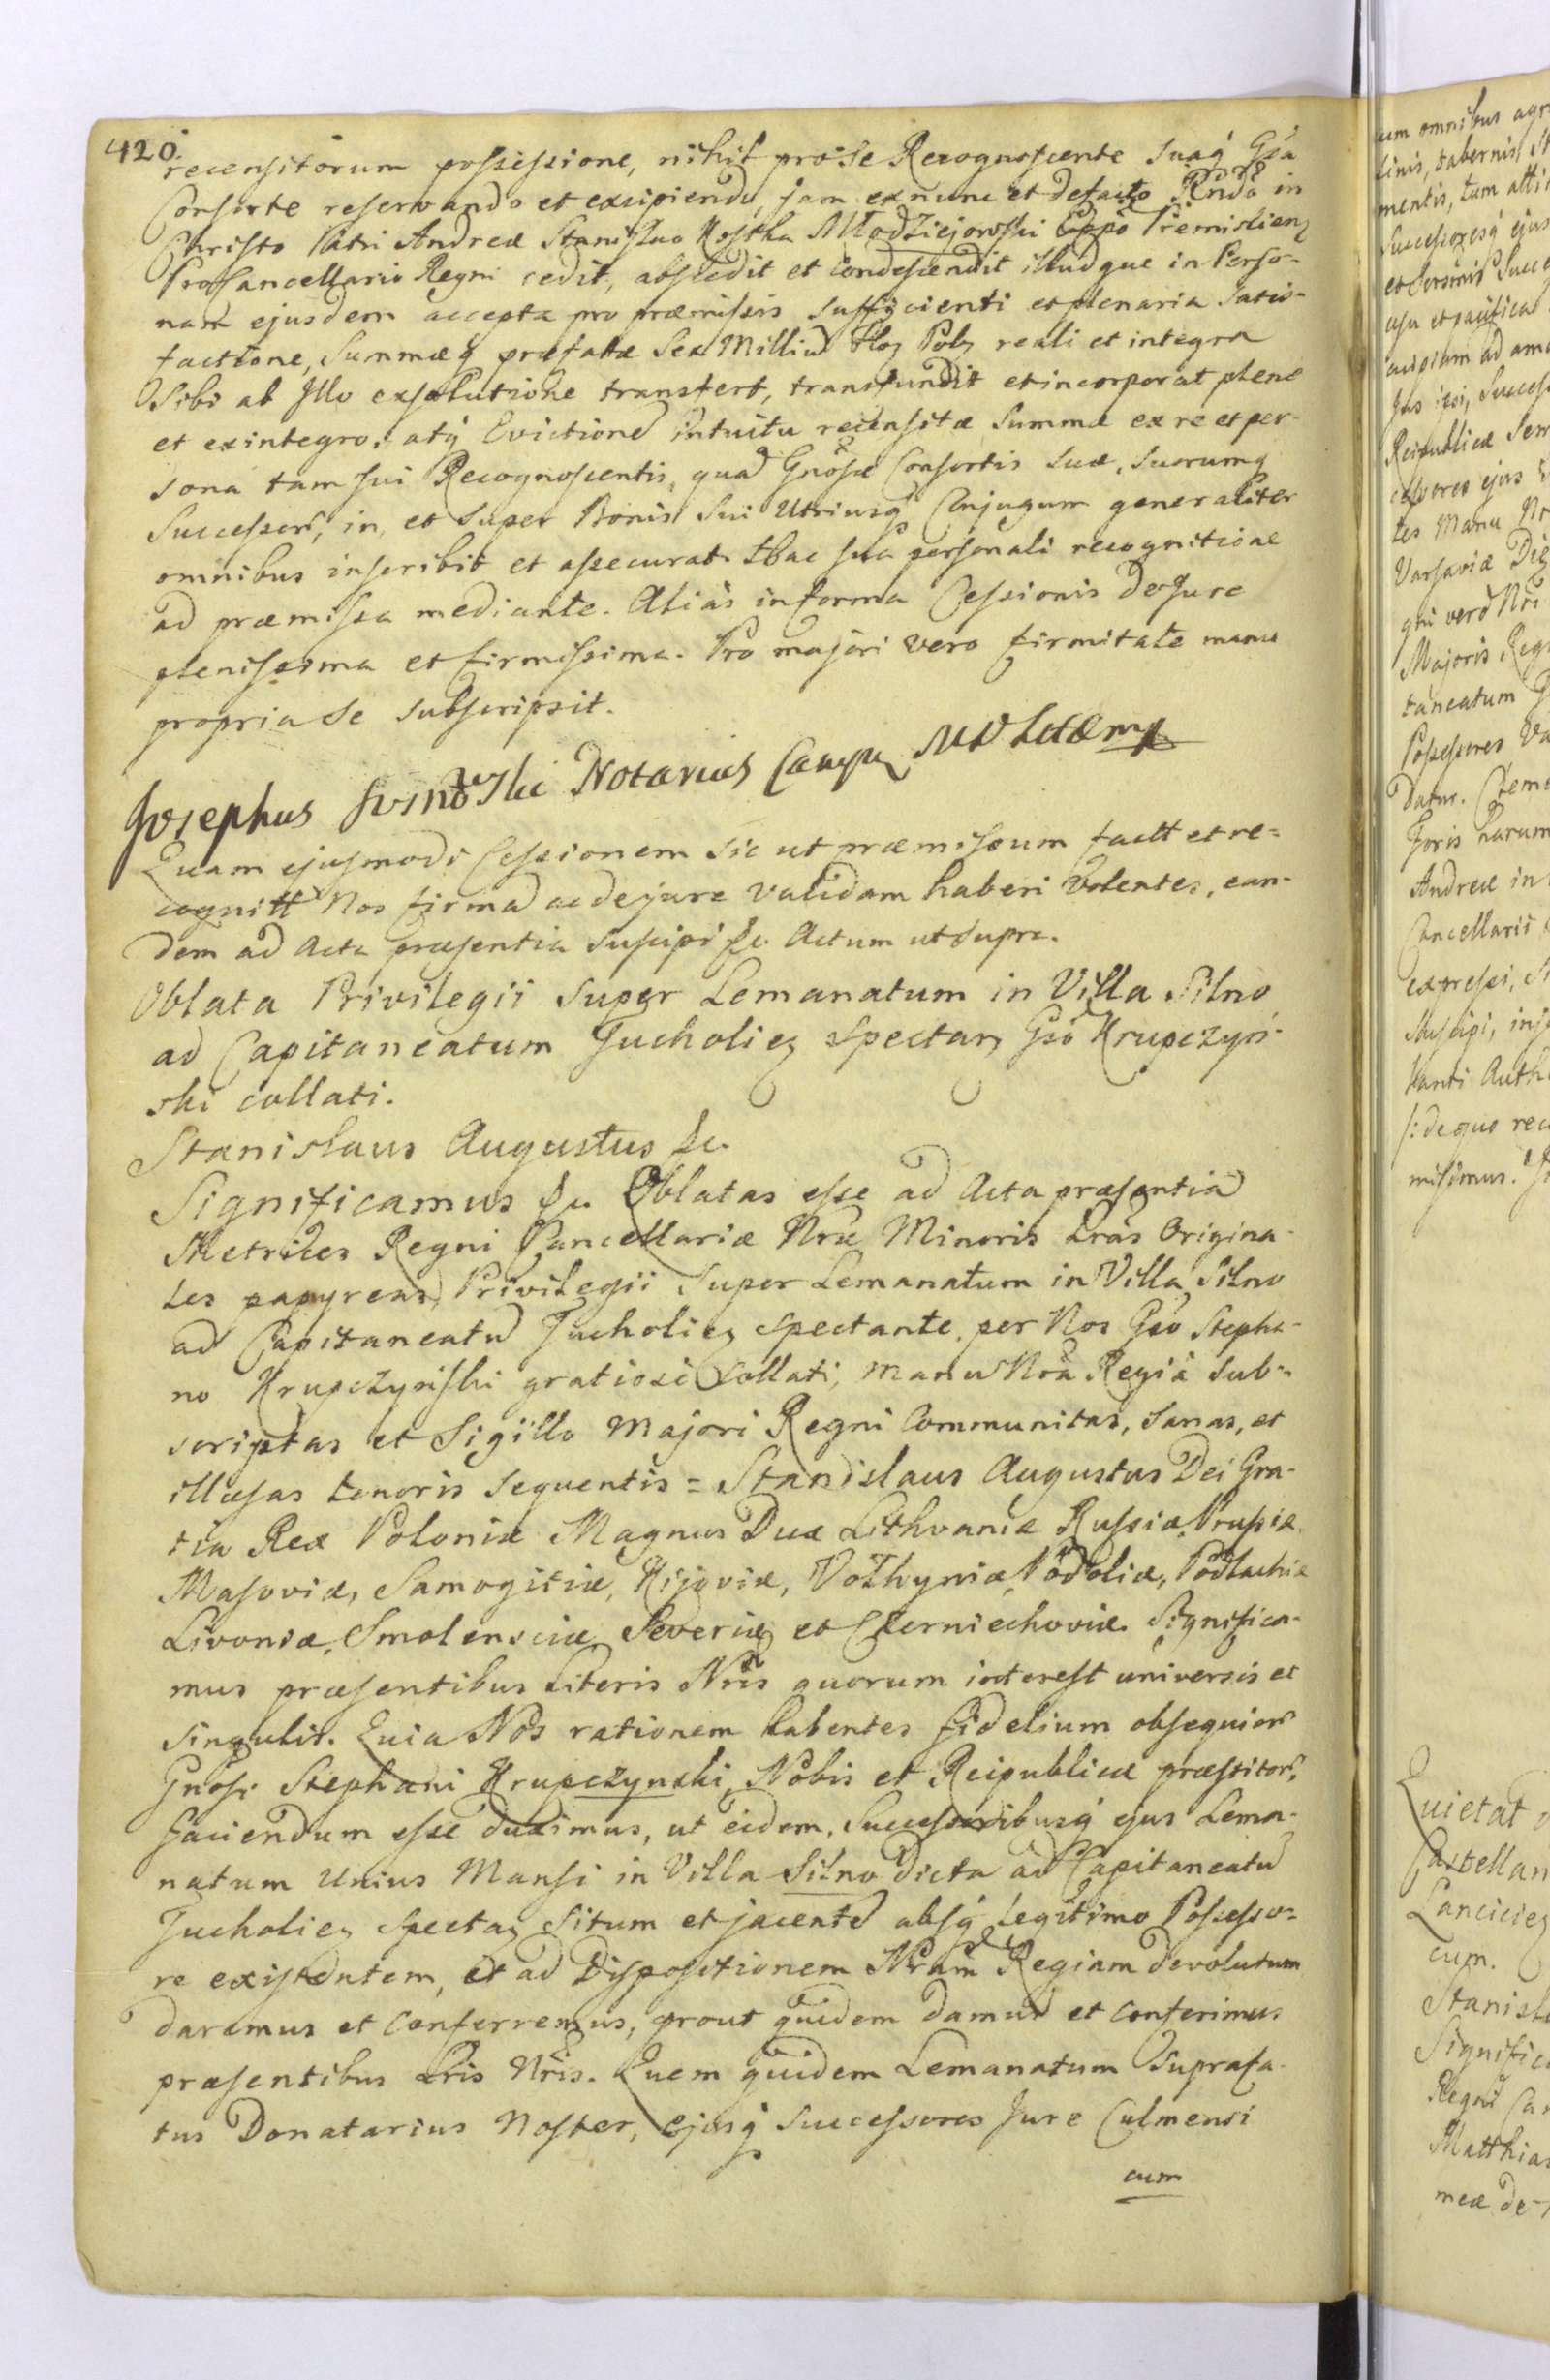 420.
recensitorum possessione, nihil pro se Recognoscente suaq́ Gsa
Consorte reservando et excipiendo, jam ex nunc et de facto Rndo in
Christo Patri Andreæ Stanislao Kostka Młodziejowski Eppo Premislien
ProCancellario Regni cedit, abscedit et condescendit illudque in Perso-
nam ejusdem accepta pro præmissis sufficienti et plenaria satis-
factione, Summæq præfatæ Sex Milliū Flor Pol reali et integra
Sibi ab Illo exsolutione transfert, transfundit et incorporat plene
et ex integro, atq́ Evictionē intuitu recensitæ Summæ ex re et per-
sona tam sui Recognoscentis, quā Gnosæ Consortis suæ, suorumq
Successor, in, et super Bonis sui Utriusq Conjugum generaliter
omnibus inscribit et assecurat. Hac sua personali recognitione
ad præmissa mediante. Alias in forma Cessionis de Jure
plenissima et firmissima. Pro majori vero firmitate manu
propria se subscripsit.
Josephus Notarius mp
Quam ejusmodi Cessionem sic ut præmissum factt et re-
cognitt Nos firmā ac de jure validam haberi Volentes, ean-
dem ad Acta præsentia suscipi &c. Actum ut supra.
Oblata Privilegii super Lemanatum in Villa Silno
ad Capitaneatum Tucholien spectan Gso Krupczyń-
ski collati.
Stanislaus Augustus &c.
Significamus &c. Oblatas esse ad Acta præsentia
Metrices Regni Cancellariæ Nræ Minoris Lras Origina-
les papyreas Privilegii super Lemanatum in Villa Silno
ad Capitaneatū Tucholien spectante, per Nos Gso Stepha-
no Krupczyński gratiose collati, manu Nra Regia sub-
scriptas et Sigillo Majori Regni Communitas, sanas, et
illæsas tenoris sequentis = Stanislaus Augustus Dei Gra-
tia Rex Poloniæ Magnus Dux Lithvaniæ Russiæ, Prussiæ,
Masoviæ, Samogitiæ, Kijoviæ, Volhyniæ, Podoliæ, Podlachiæ
Livoniæ, Smolensciæ Severiæ et Czerniechoviæ. Significa-
mus præsentibus Literis Nris quorum interest universis et
singulis. Quia Nos rationem habentes fidelium obsequior
Gnosi Stephani Krupczynski, Nobis et Reipublicæ præstitor,
faciendum esse duximus, ut eidem, Successoribusq́ ejus Lema-
natum Unius Mansi in Villa Silno dicta ad Capitaneatū
Tucholien spectan situm et jacentē absq́ legitimo Possesso-
re existentem, et ad Dispositionem Nram Regiam devolutum
daremus et conferremus, prout quidem damus et conferimus
præsentibus Lris Nris. Quem quidem Lemanatum supra fa-
tus Donatarius Noster, ejusq́ Successores Jure Culmensi
cum
um omnibus agr
linis, tabernis,
mentis, tum
Successoresq́ ejus
et
usu et pacifica
ad
Jus ipsi, Success
Reipublicæ
ejus
tes Manu Nr
Varsaviæ Die
gni vero Nri
Majoris Reg
taneatum
Possessores
datur.
foris harum
Andreæ in
Cancellarii
expressi,
suscipi,
Auth
/: de quo rec
misimus.
Quietat
Castellan
Lancicien
cum.
Stanisl
Signific
Regni Ca
Matthias
meæ de